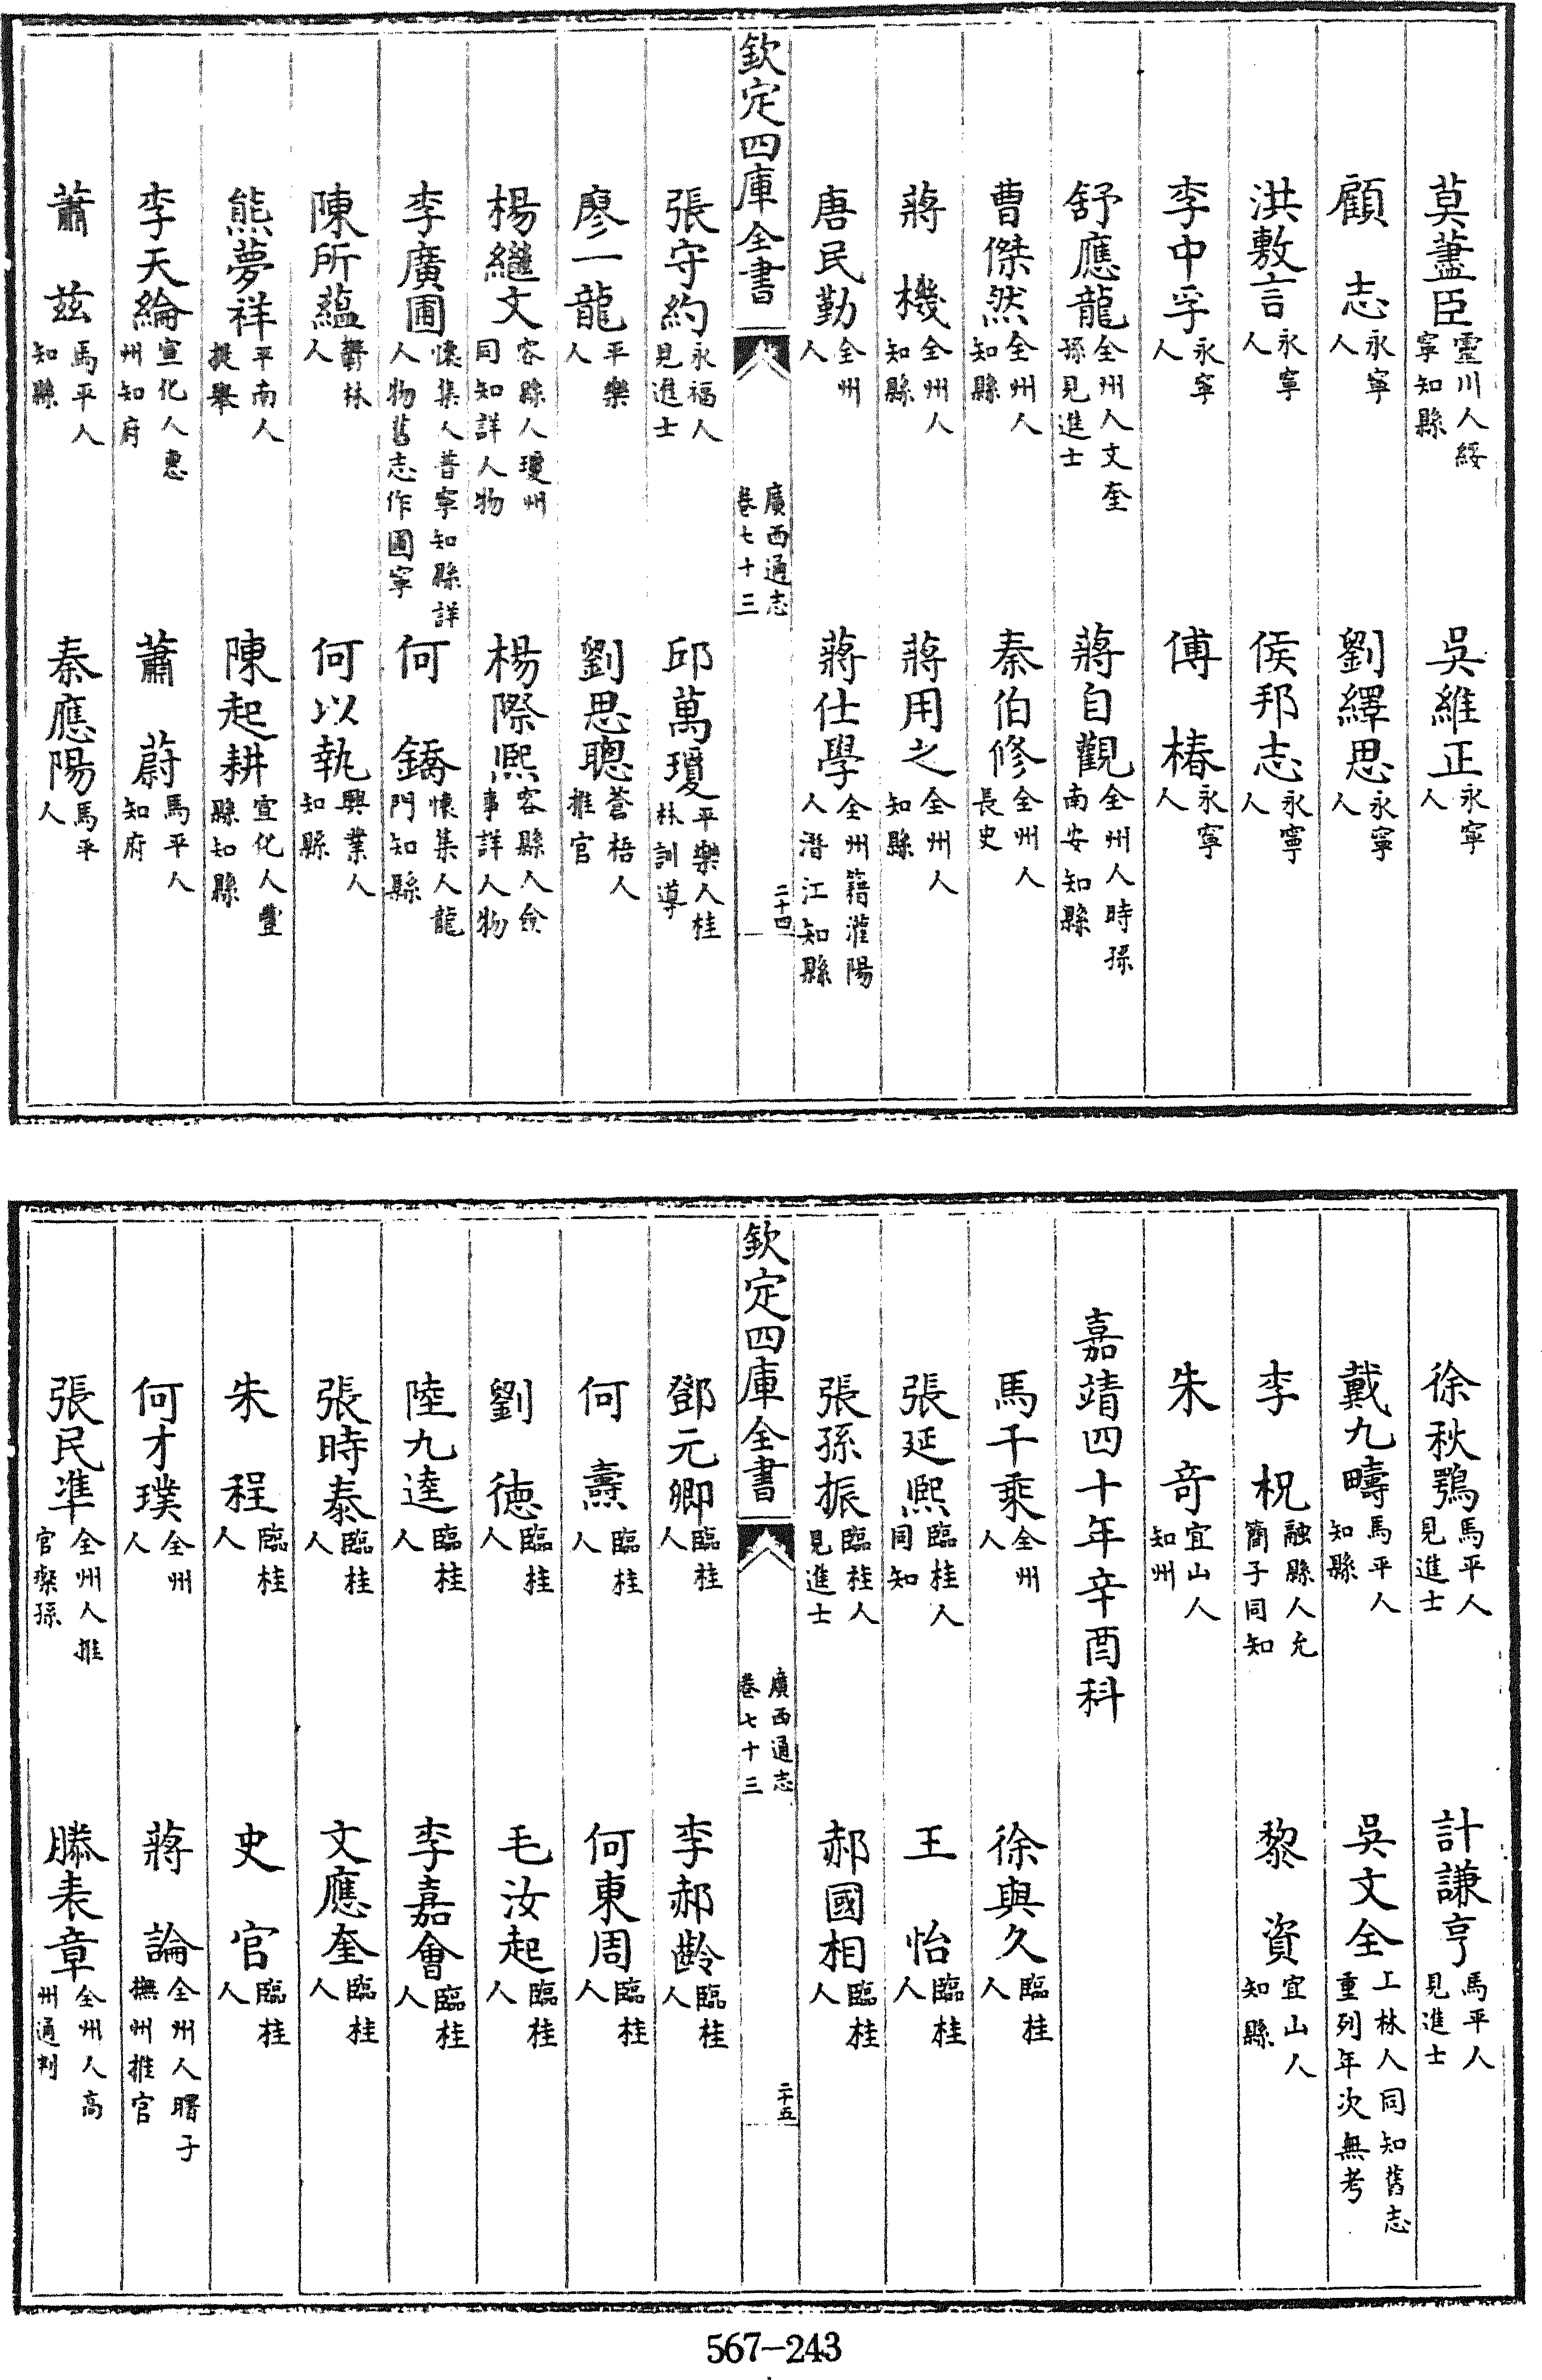 莫藎臣 靈川人綏寧知縣 吳維正 永寧人
顧志 永寧人 劉繹思 永寧人
洪敷言 永寧人 侯邦志 永寧人
李中孚 永寧人 傅椿 永寧人
舒應龍 全州人文奎孫見進士 蔣自觀 全州人時孫南安知縣
曹傑然 全州人知縣 秦伯修 全州人長史
蔣機 全州人知縣 蔣用之 全州人知縣
唐民勤 全州人 蔣仕學 全州籍灌陽人潛江知縣
欽定四庫全書 廣西通志卷七十三 二十四
張守約 永福人見進士 邱萬瓊 平樂人桂林訓導
廖一龍 平樂人 劉思聰 蒼梧人推官
楊繼文 容縣人瓊州同知詳人物 楊際熙 容縣人僉事詳人物
李廣圃 懷集人普寧知縣詳人物舊志作圃寧 何鐈 懷集人龍門知縣
陳所蘊 鬱林人 何以執 興業人知縣
熊夢祥 平南人提舉 陳起耕 宣化人豐縣知縣
李天綸 宣化人惠州知府 蕭蔚 馬平人知府
蕭兹 馬平人知縣 秦應陽 馬平人
徐秋鶚 馬平人見進士 計謙亨 馬平人見進士
戴九疇 馬平人知縣 吳文全 上林人同知舊志重列年次無考
李柷 融縣人充簡子同知 黎資 宜山人知縣
朱奇 宜山人知州
嘉靖四十年辛酉科
馬千乘 全州人 徐與久 臨桂人
張延熙 臨桂人同知 王怡 臨桂人
張孫振 臨桂人見進士 郝國相 臨桂人
欽定四庫全書 廣西通志卷七十三 二十五
鄧元卿 臨桂人 李郝齡 臨桂人
何燾 臨桂人 何東周 臨桂人
劉德 臨桂人 毛汝起 臨桂人
陸九逵 臨桂人 李嘉會 臨桂人
張時泰 臨桂人 文應奎 臨桂人
朱程 臨桂人 史官 臨桂人
何才璞 全州人 蔣論 全州人曙子撫州推官
張民準 全州人推官璨孫 滕表章 全州人高州通判
567-243